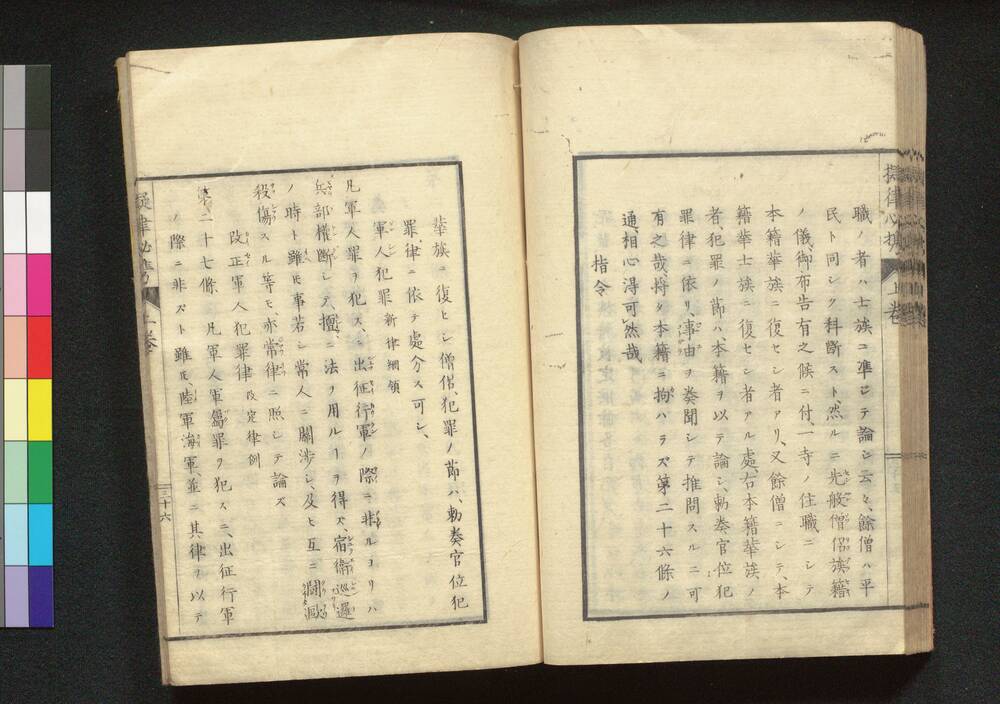 擬律必携 上巻
職ノ者ハ士族ニ準シテ論シ云々、餘僧ハ平
民ト同シク科断スト、然ルニ先般僧侶族籍
ノ儀、御布告有之候ニ付、一寺ノ住職ニシテ
本籍華族ニ復セシ者アリ、又餘僧ニシテ、本
籍華士族ニ復セシ者アル處、右本籍華族ノ
者、犯罪ノ節ハ、本籍ヲ以テ論シ、勅奏官位犯
罪律ニ依リ、事由ヲ奏聞シテ推問スルニ可
有之哉、将タ本籍ニ拘ハラズ、第二十六條ノ
通、相心得可然哉
指令
華族ニ復ヒシ僧侶、犯罪ノ節ハ、勅奏官位犯
罪律ニ依テ處分ス可シ、
軍人犯罪 新律綱領
凡軍人罪ヲ犯ス、出征行軍ノ際ニ非ルヨリハ
兵部權断シテ、擅ニ法ヲ用ルヿヲ得ス、宿衛巡邏
ノ時ト雖モ、事若シ常人ニ關渉シ、及ヒ互ニ鬪毆
殺傷スル等モ、亦常律ニ照シテ論ス
改正軍人犯罪律 改定律例
第二十七條 凡軍人軍屬罪ヲ犯スニ、出征行軍
ノ際ニ非スト雖モ、陸軍海軍、並ニ其律ヲ以テ
擬律必携 上巻
三十六